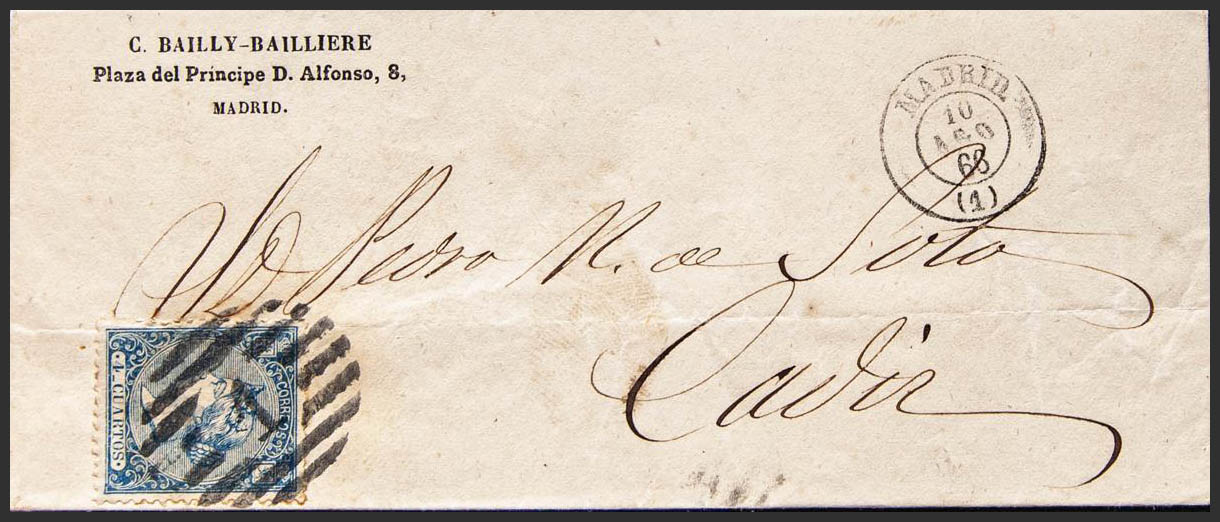 C. BAILLY-BAILLIERE
Plaza del Príncipe D. Alfonso, 8,
MADRID.
MADRID
10
AGO
66
(1)
D. Pedro N. de Soto
Cadiz
CORREOS
4 CUARTOS